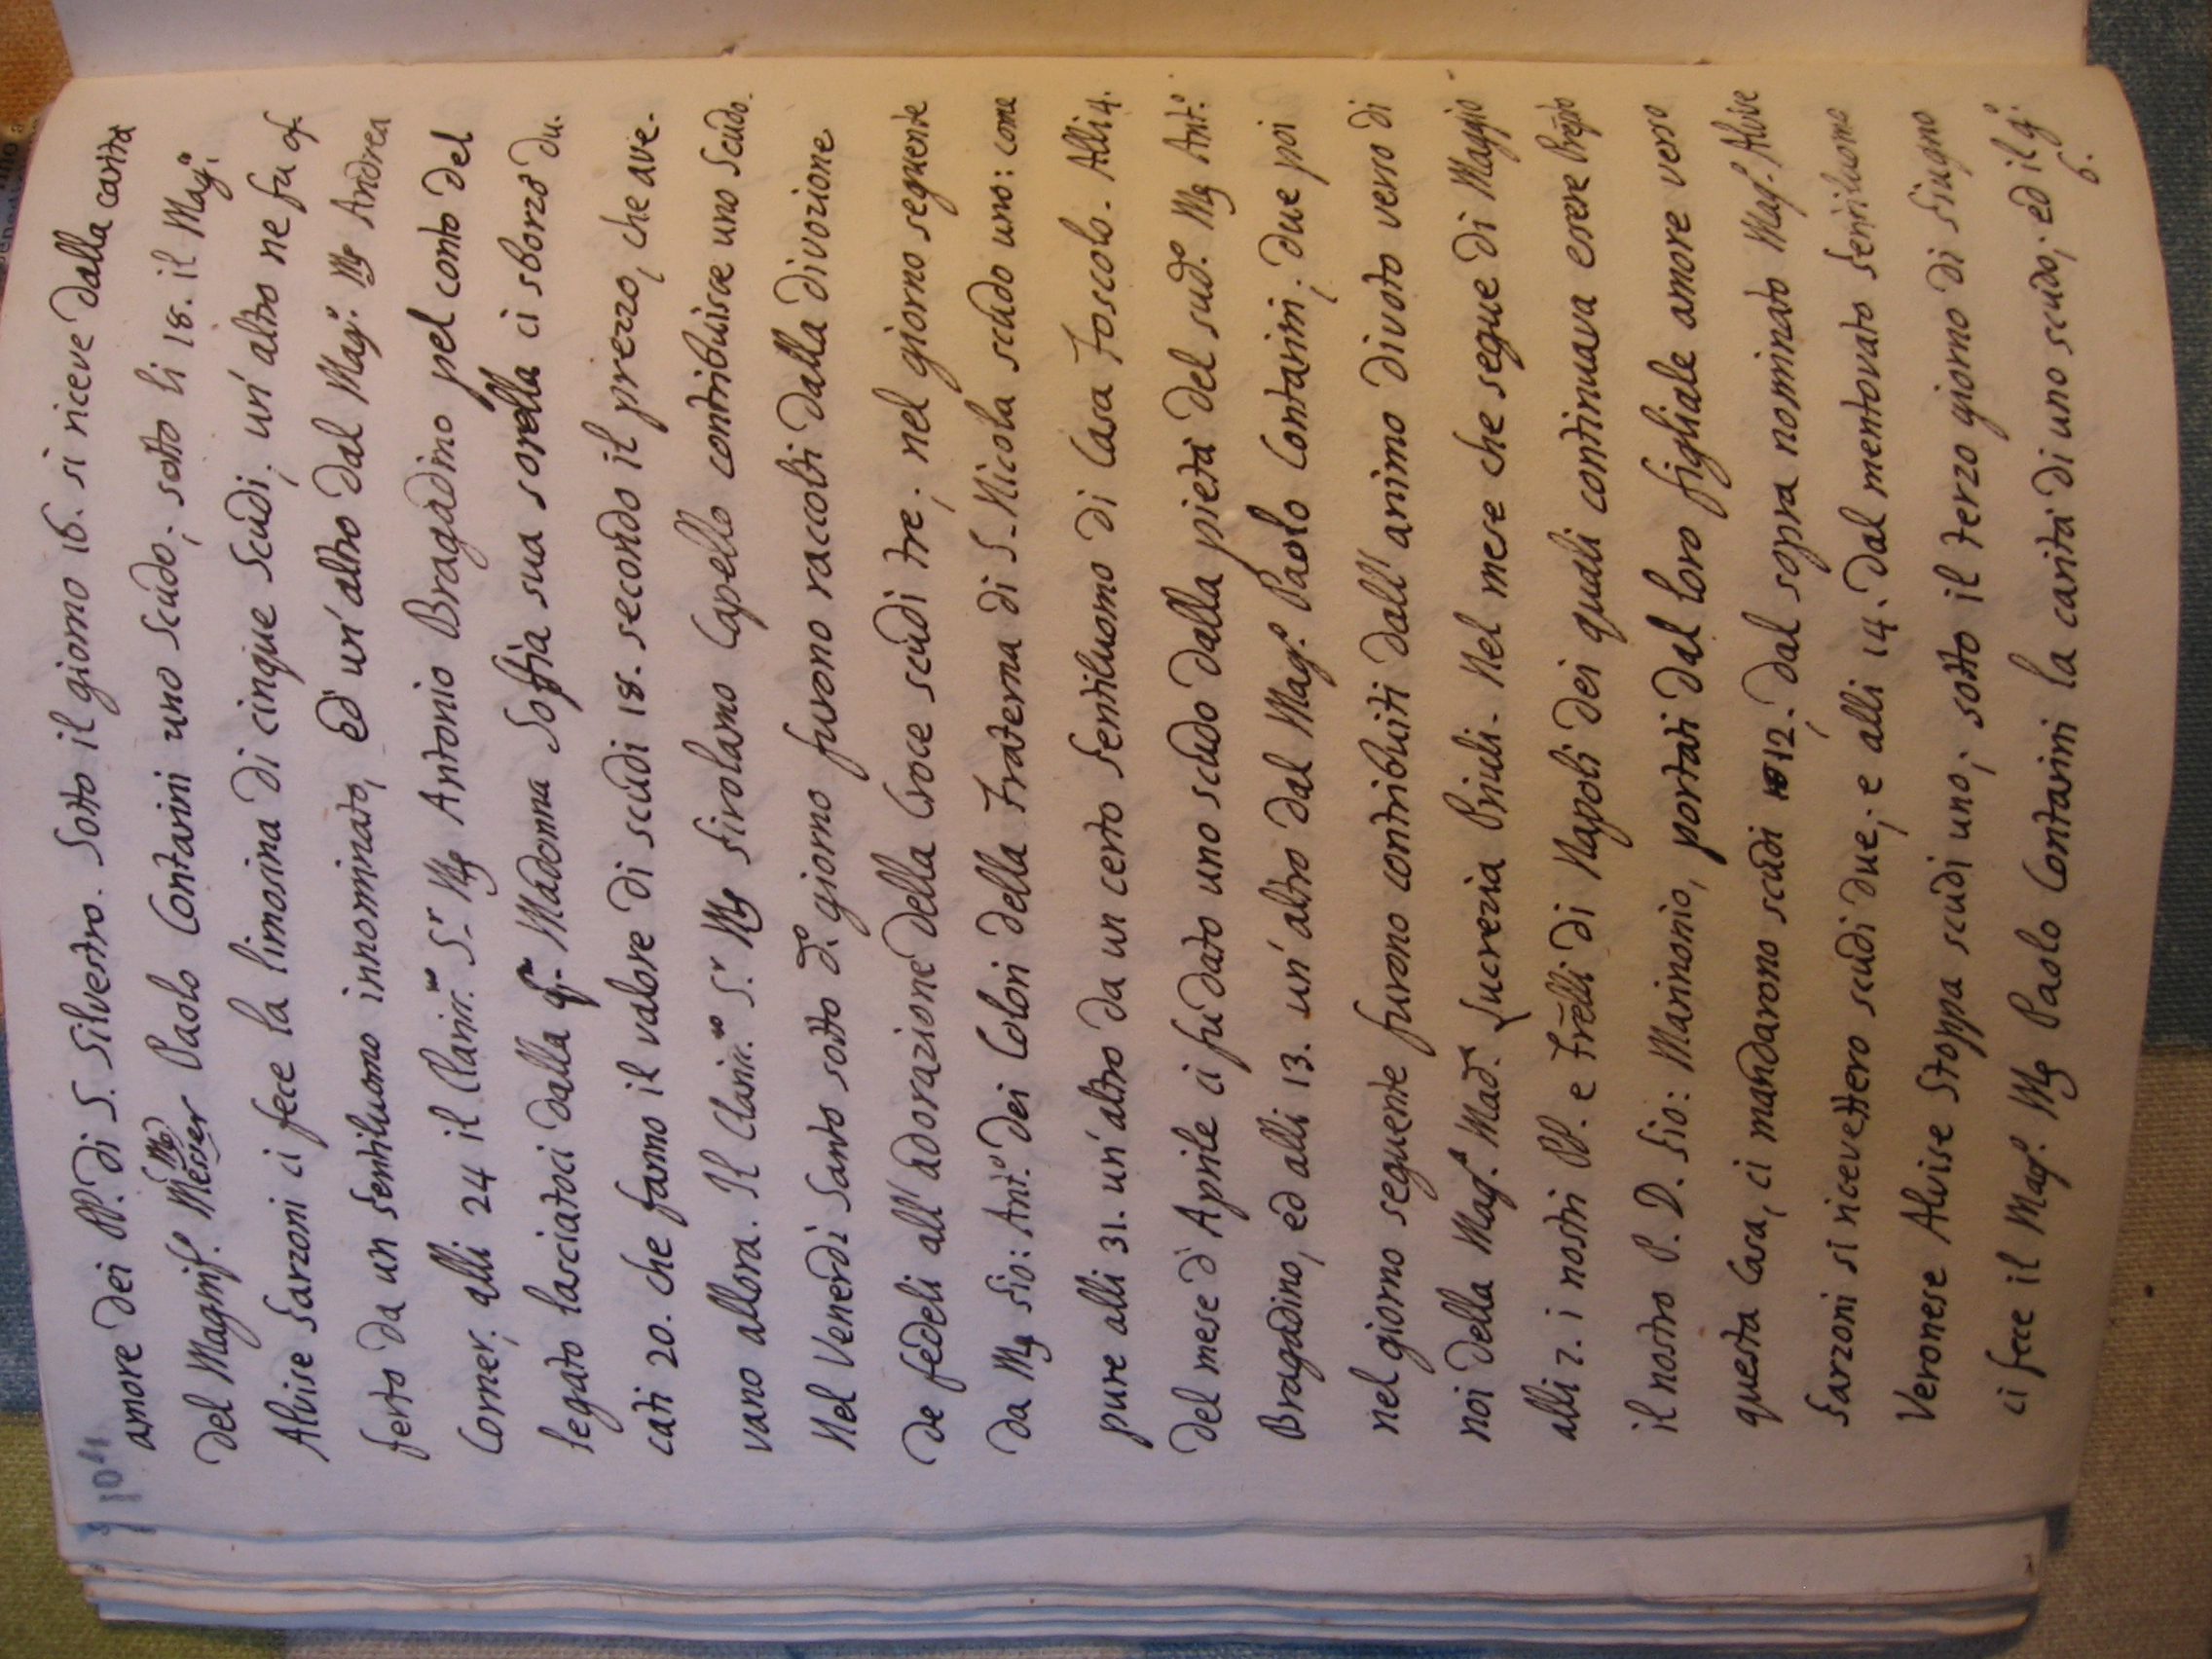 104
amore dei PP. di S. Silvestro. Sotto il giorno 16. si riceve dalla carità
del Magnif.º Messer Mg Paolo Contarini uno scudo; sotto li 18. il Mag.º
Aluise Garzoni ci fece la limosina di cinque scudi; un' altro ne fu of-
ferto da un Gentiluomo innominato, ed un' altro dal Mag.º Mg Andrea
Corner; alli 24 il Clariss.mo S.r Mg Antonio Bragadino pel conto del
legato lasciatoci dalla q.m Madonna Soffia sua sorella ci sborzò du-
cati 20. che fanno il valore di scudi 18. secondo il prezzo, che ave-
vano allora. Il Clariss.mo S.r Mg Girolamo Capello contribuisce uno scudo.
Nel Venerdì Santo sotto d.º giorno furono raccolti dalla divozione
de fedeli all' adorazione della Croce scudi tre; nel giorno seguente
da Mg Gio: Ant.º dei Colori della Fraterna di S. Nicola scudo uno: come
pure alli 31. un' altro da un certo Gentiluomo di Casa Foscolo. Alli 4.
del mese d' Aprile ci fu dato uno scudo dalla pietà del sud.º Mg Ant.º
Bragadino, ed alli 13. un' altro dal Mag.º Paolo Contarini; due poi
nel giorno seguente furono contribuiti dall' animo divoto verso di
noi della Mag.a Mad.a Lucrezia Priuli. Nel mese che segue di Maggio
alli 7. i nostri PP. e Frelli di Napoli dei quali continuava essere Prepto
il nostro P. D. Gio: Marinonio, portati dal loro figliale amore verso
questa Casa, ci mandarono scudi 12; dal sopra nominato Mag.º Aluise
Garzoni si ricevettero scudi due; e alli 14. dal mentovato Gentiluomo
Veronese Aluise Stoppa scudi uno; sotto il terzo giorno di Giugno
ci fece il Mag.º Mg Paolo Contarini la carità di uno scudo; ed il g.º
6.